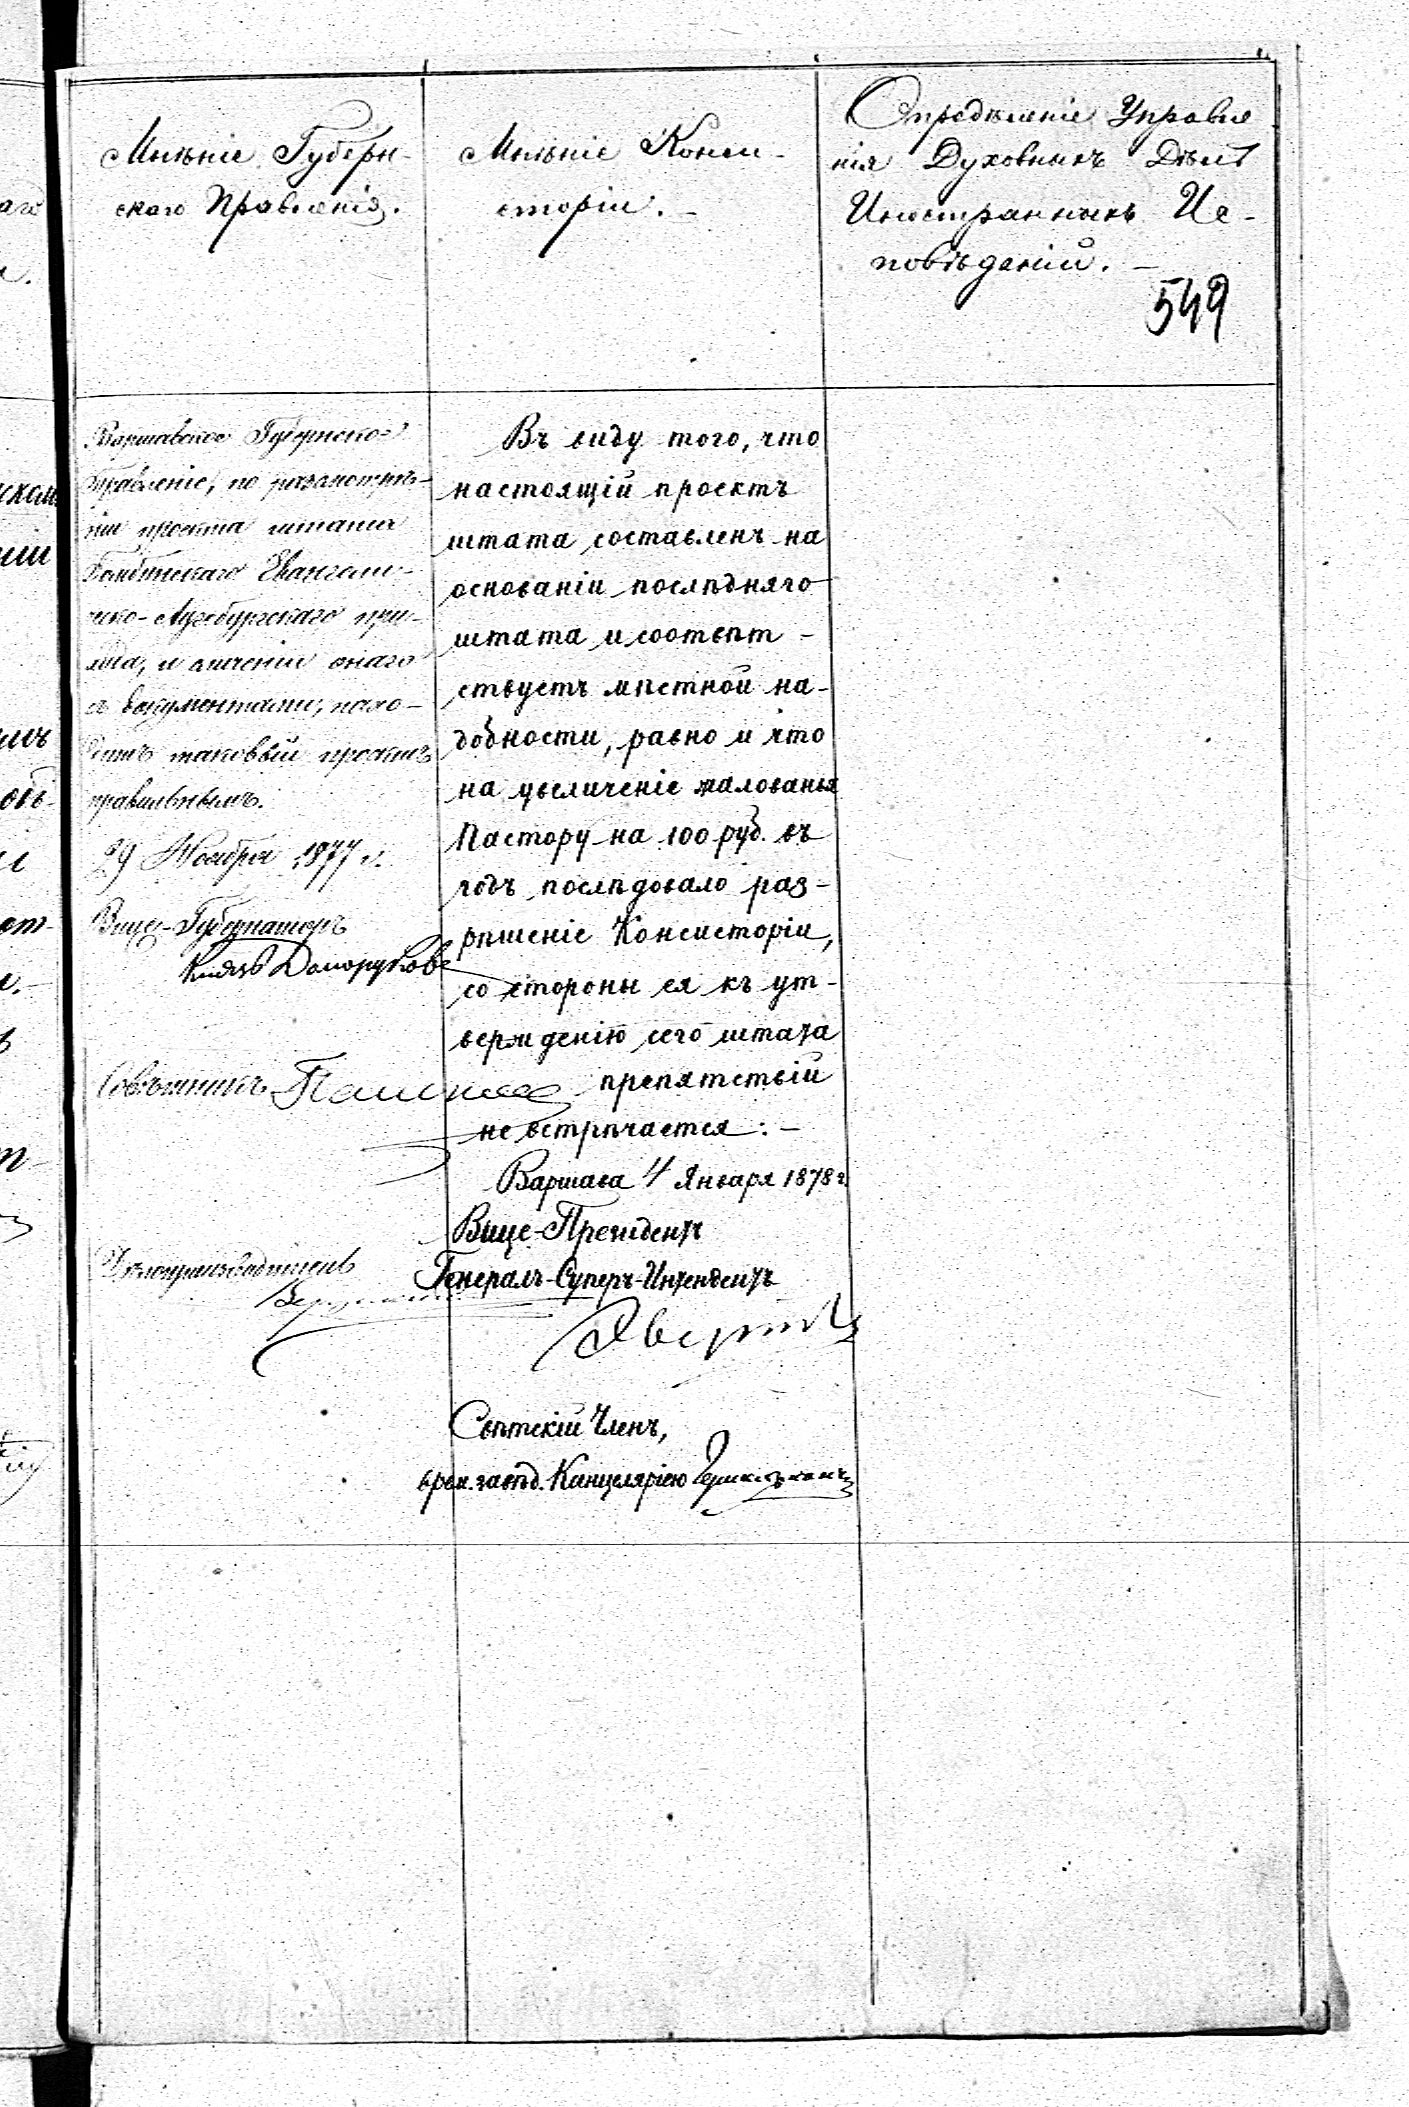 Мнѣніе Губерн-
скаго Правленія.
Мнѣніе Конси-
сторіи. –
Опредѣленіе Управле
нія Духовныхъ Дѣлъ
Иностранныхъ Ис-
повѣданій. –
549
Варшавское Губернское
Правленіе, по разсмотрѣ-
ніи проекта штата
Евангели-
ческо-Аугсбургскаго при-
хода, и сличеніи онаго
съ документами, нахо-
дитъ таковый проектъ
правильнымъ.
29 Ноября 1877 г.
Вице-Губернаторъ
Князь Долоруковъ
Совѣтникъ
Дѣлопроизводитель
Въ виду того, что
настоящій проектъ
штата составленъ на
основаніи послѣдняго
штата и соотвѣт-
ствуетъ мѣстной на-
добности, равно и что
на увеличеніе жалованья
Пастору на 100 руб. въ
годъ послѣдовало раз-
рѣшеніе Консисторіи,
со стороны ея къ ут-
вержденію сего штата
препятствій
не встрѣчается: –
Варшава 4 Января 1878 г.
Вице-Президентъ
Генералъ-Суперъ-Интендентъ
Свѣтскій Членъ,
врем. завѣд. Канцеляріею